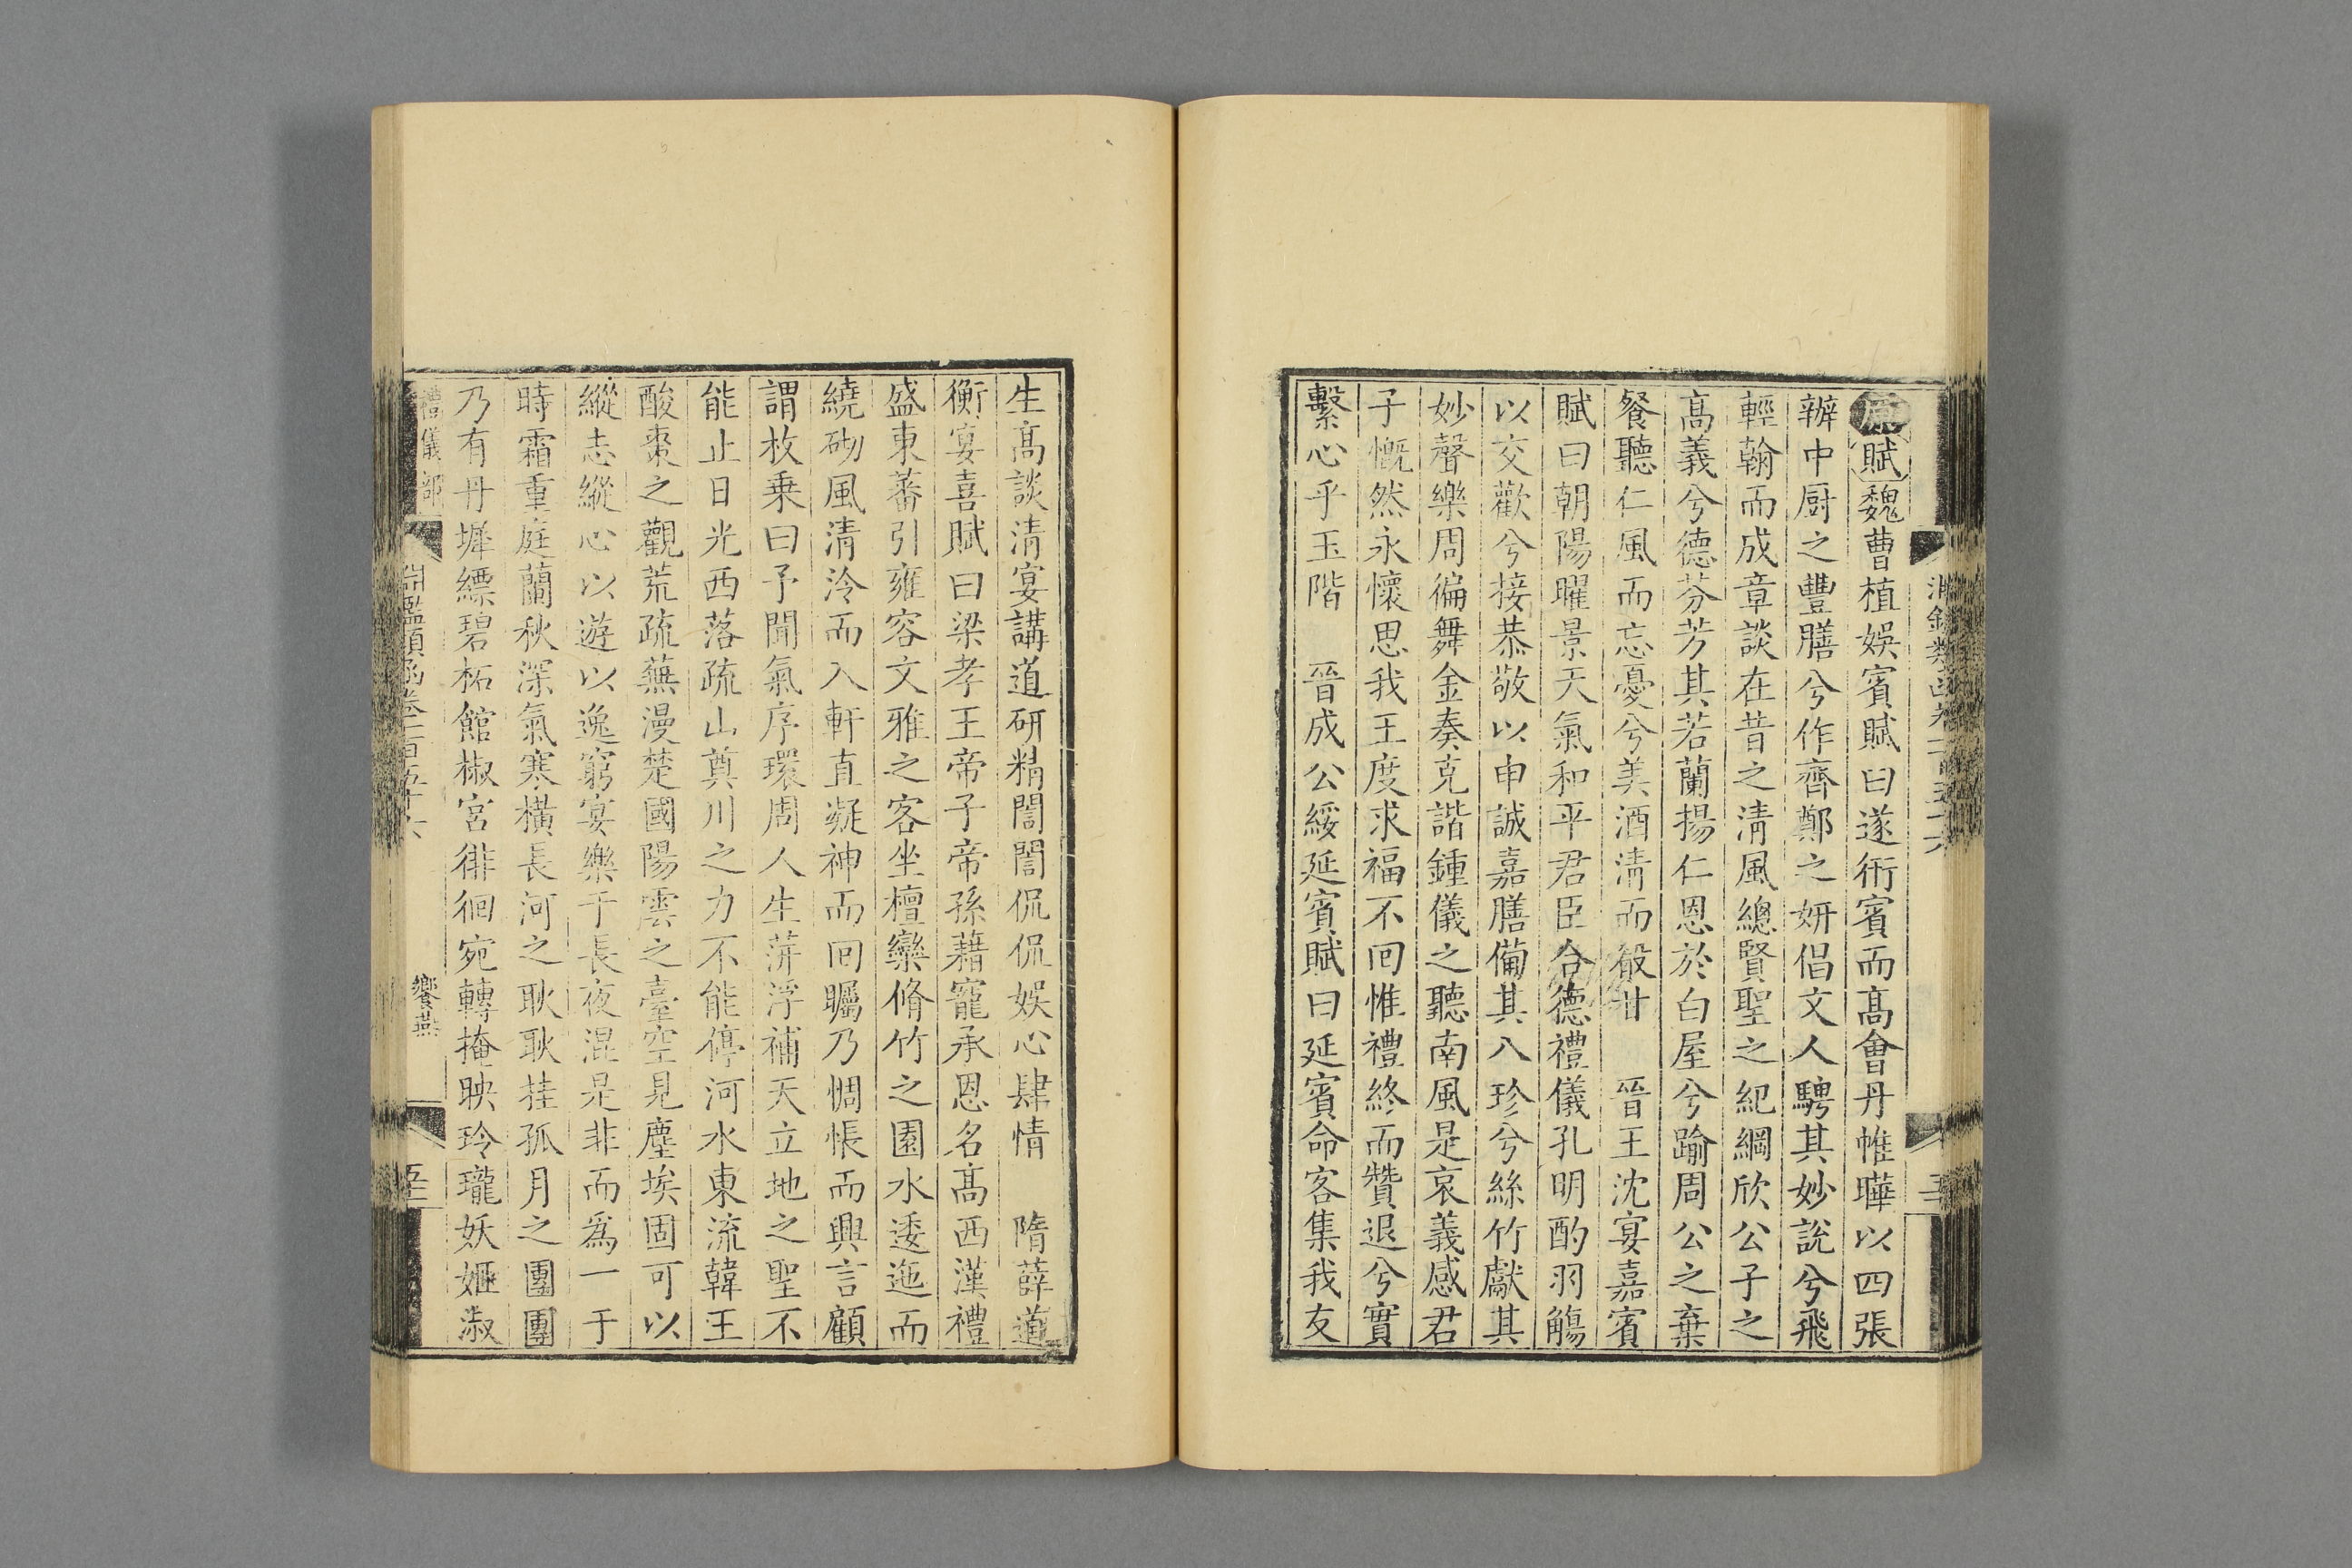 原賦魏曹植娛賓賦曰遂衎賓而髙會丹帷曄以四張
辦中厨之豐膳兮作齊鄭之妍倡文人騁其妙說兮飛
輕翰而成章談在昔之清風總賢聖之紀綱欣公子之
髙義兮德芬芳其若蘭揚仁恩於白屋兮踰周公之棄
餐聽仁風而忘憂兮美酒清而殽甘　晉王沈宴嘉賓
賦曰朝陽曜景天氣和平君臣合德禮儀孔明酌羽觴
以交歡兮接恭敬以申誠嘉膳備其八珍兮絲竹獻其
妙聲樂周徧舞金奏克諧鍾儀之聽南風是哀義感君
子慨然永懷思我王度求福不回惟禮終而贊退兮實
繫心乎玉階　晉成公綏延賓賦曰延賓命客集我友
生髙談清宴講道研精誾誾侃侃娛心肆情　隋薛道
衡宴喜賦曰梁孝王帝子帝孫藉寵承恩名髙西漢禮
盛東蕃引雍容文雅之客坐檀欒脩竹之園水逶迤而
繞砌風清泠而入軒直凝神而回矚乃惆悵而興言顧
謂枚乗曰予聞氣序環周人生萍浮補天立地之聖不
能止日光西落疏山奠川之力不能停河水東流韓王
酸棗之觀荒疏蕪漫楚國陽雲之臺空見塵埃固可以
縱志縱心以遊以逸窮宴樂于長夜混是非而爲一于
時霜重庭蘭秋深氣寒橫長河之耿耿挂孤月之團團
乃有丹墀縹碧柘館椒宮徘徊宛轉掩映玲瓏妖姬淑
禮儀部　淵鑑類函卷一百五十六　饗燕